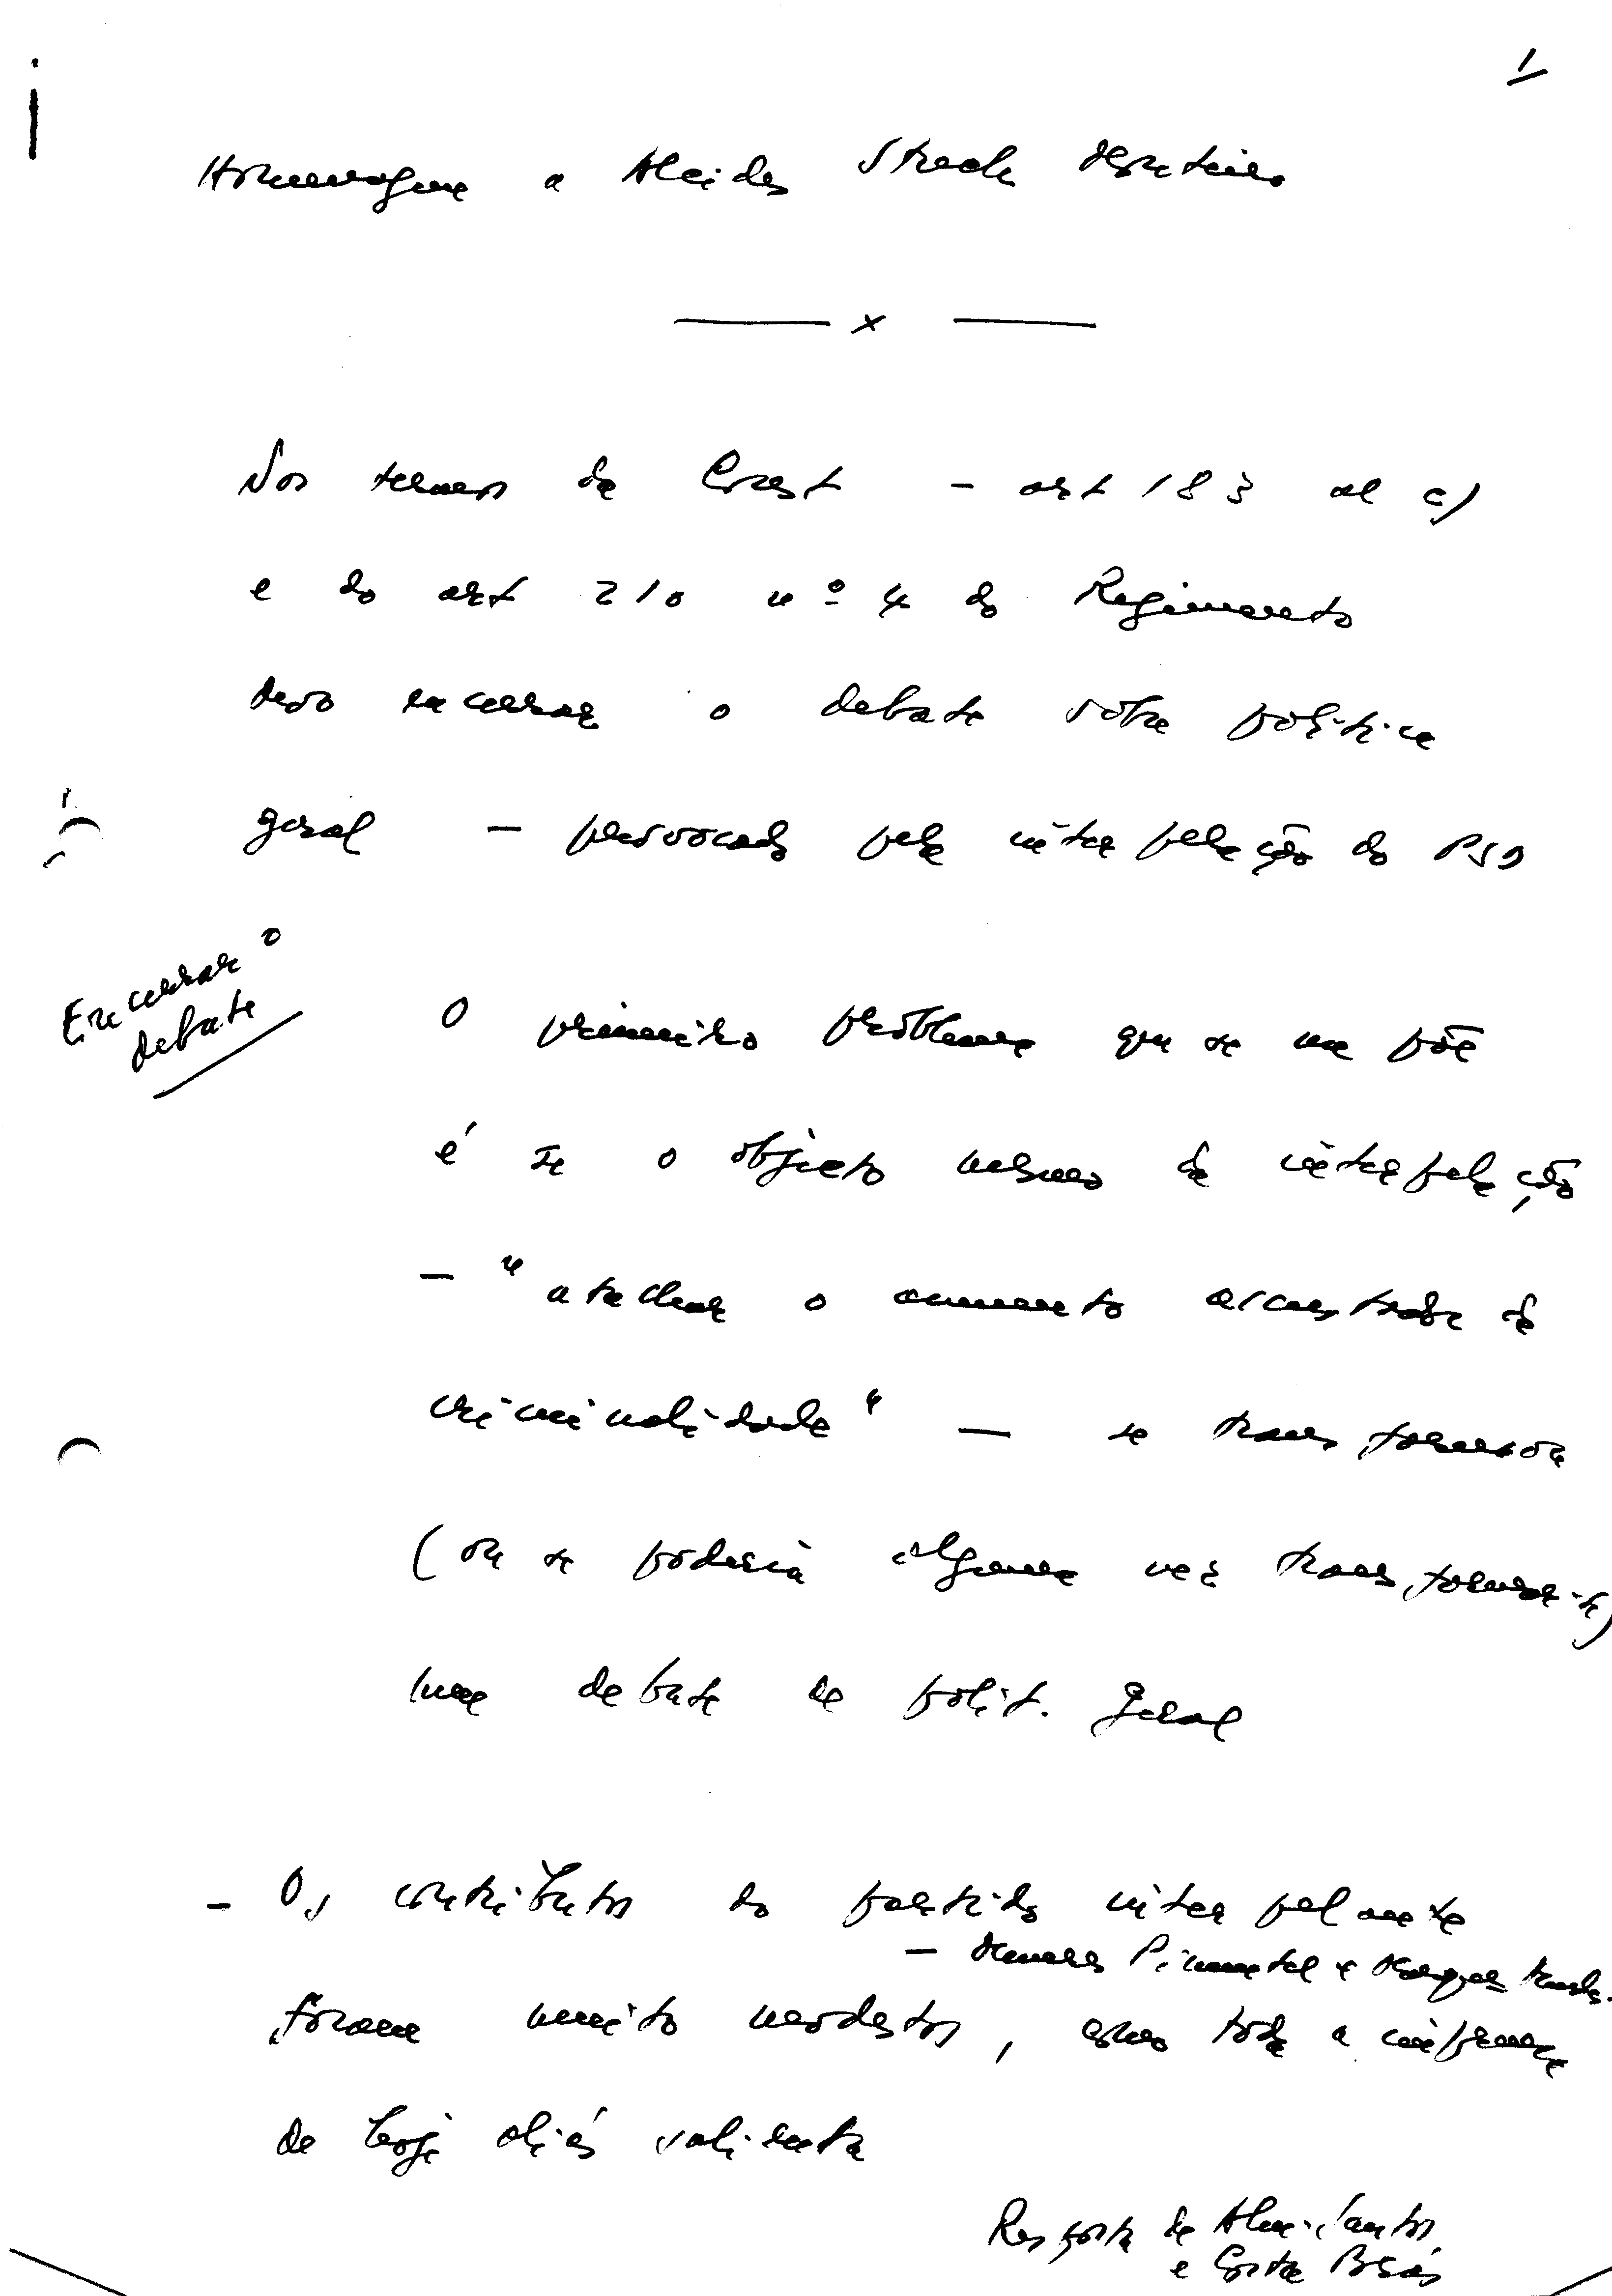 1
Homenagem a Alcides Strecht Monteiro
x
Nos termos da Const - art 183 al c)
e do art 210 nº 4 do Regimento
devo encerrar o debate sobre politica
geral - provocado pela interpelação do PSD
Encerrar o
debate
O primeiro problema que se me põe
é se o objecto mesmo da interpelação
- "
o aumento da
criminalidade" - se transformou
(ou se poderia alguma vez transformar-se)
num debate de polit. geral
- Os contributos do partido interpelante
- Meneres Pimentel e Marques Mendes.
foram muito modestos, como toda a imprensa
de hoje aliás salienta
Resposta de Almei. Santos
e Costa Brás